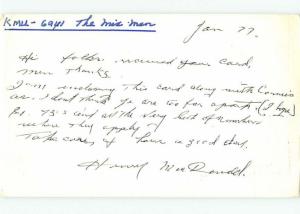 KMU- 6941 The Mix Man
Jan 77.
Hi folks, received your card,
Many Thanks.
I'm enclosing this card along with Connies
as I dont think ya are too far apart, (I hope)
73's and all the very best of numbers
where they apply
Take care, & have a good day.
Henry